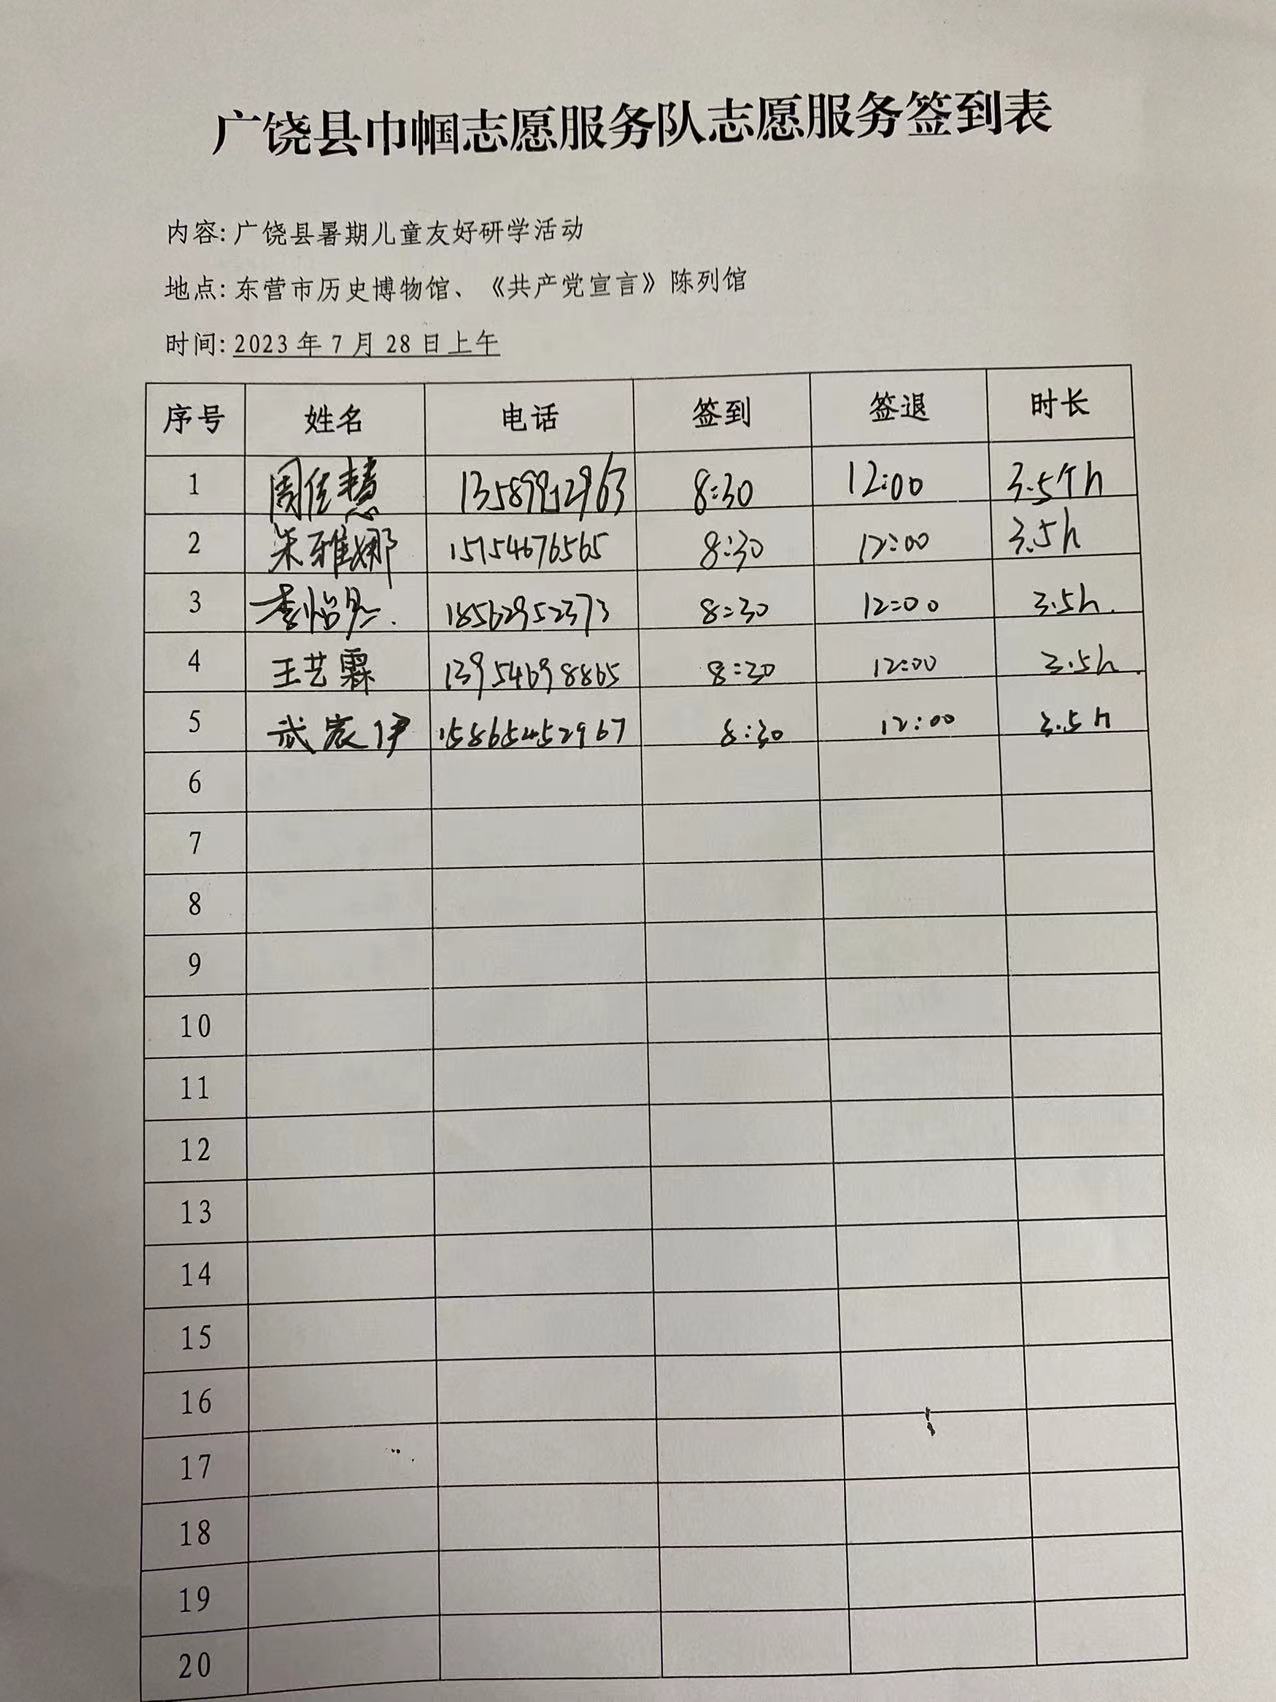 广饶县巾帼志愿服务队志愿服务签到表
内容:广饶县暑期儿童友好研学活动
地点:东营市历史博物馆、《共产党宣言》陈列馆
时间:2023年7月28日上午
序号 姓名 电话 签到 签退 时长
1 周佳慧 13589912963 8:30 12:00 3.5个h
2 朱雅娜 15154676565 8:30 12:00 3.5h
3 李怡 18562952373 8:30 12:00 3.5h.
4 王艺霖 13954698865 8:30 12:00 3.5h.
5 武宸伊 15865452967 8:30 12:00 3.5h
6
7
8
9
10
11
12
13
14
15
16
17
18
19
20